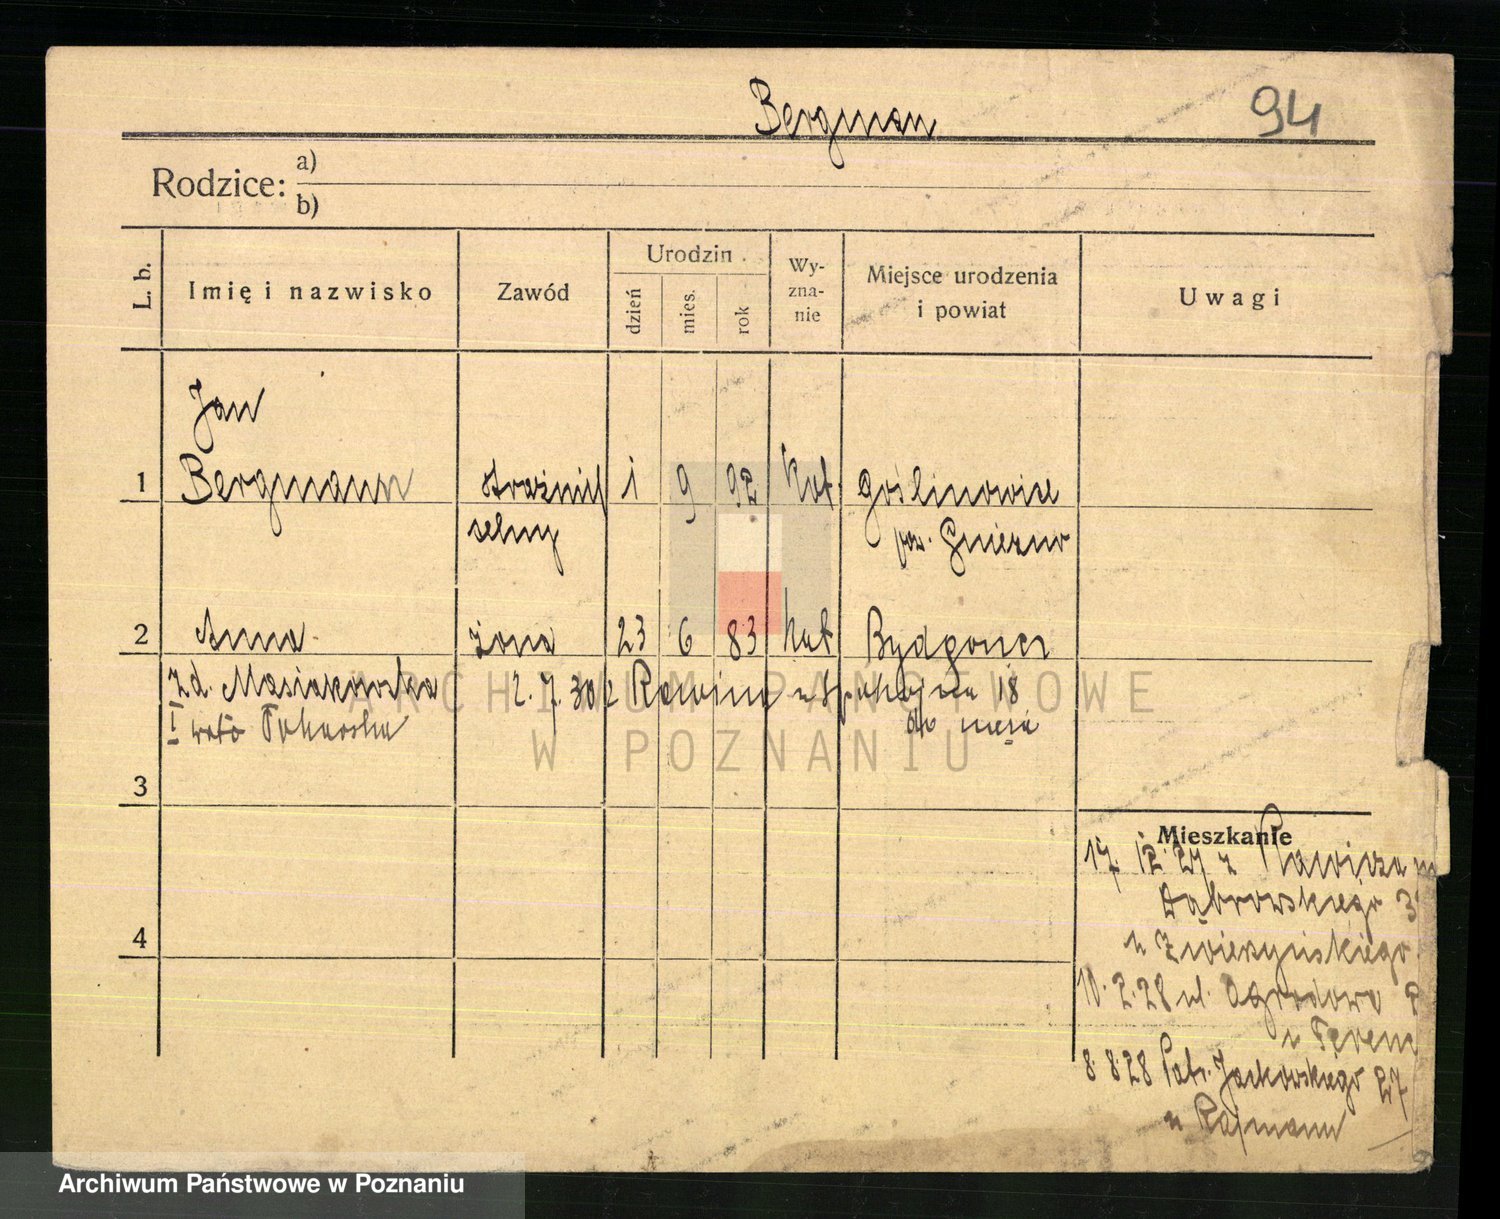 Bergman
94
Rodzice:
a)
b)
L. b.
Imię i nazwisko
Zawód
Urodzin
dzień
mies.
rok
Wy-
zna-
nie
Miejsce urodzenia
i powiat
Uwagi
Jan
1 Bergmann strażnik 1 9 92 Kat. Goślinowice
celny pow. Gniezno
2 Anna żona 23 6 83 kat Bydgoszcz
zd. Masiakowska 2. 7. 30 z 18
I do męża
3
Mieszkanie
17. 12. 27 z Rawicza
Dąbrowskiego
u Zwierzyńskiego
4
10. 2. 28 ul. Ogrodowa
u
8. 8. 28 Patr. Jackowskiego 27
u Rajmann
ARCHIWUM PAŃSTWOWE
W POZNANIU
Archiwum Państwowe w Poznaniu